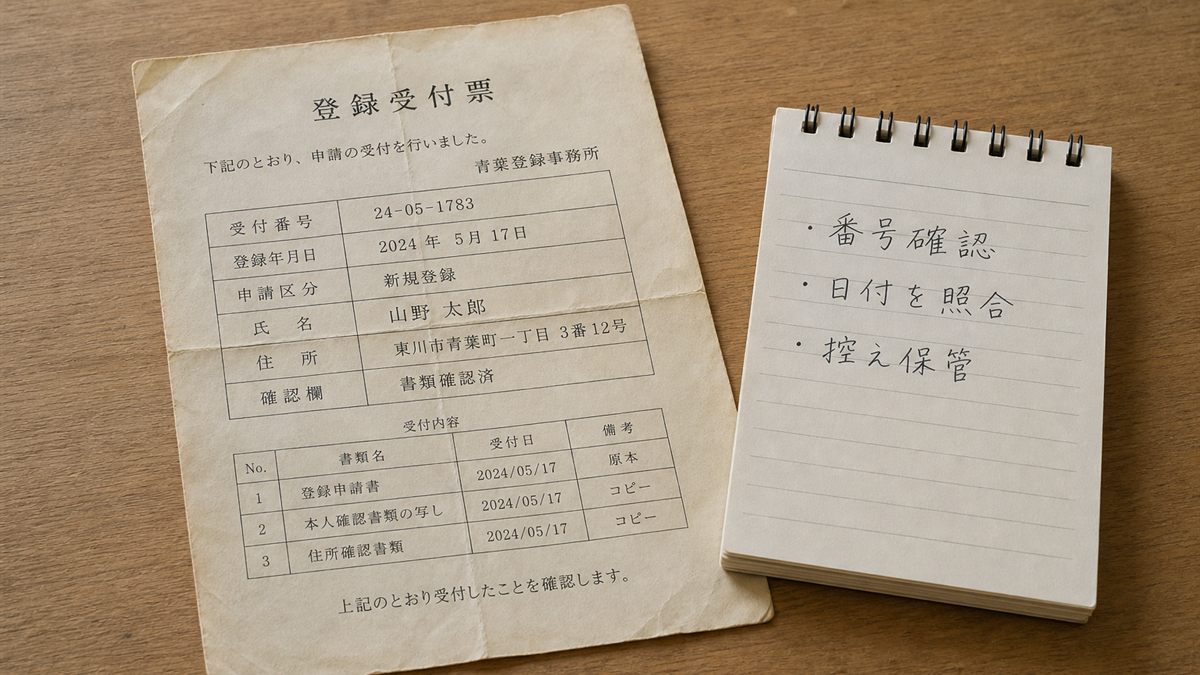 登録受付票
下記のとおり、申請の受付を行いました。
青葉登録事務所
受付番号 24-05-1783
登録年月日 2024年 5月17日
申請区分 新規登録
氏 名 山野 太郎
住 所 東川市青葉町一丁目 3番12号
確認欄 書類確認済
受付内容
No. 書類名 受付日 備考
1 登録申請書 2024/05/17 原本
2 本人確認書類の写し 2024/05/17 コピー
3 住所確認書類 2024/05/17 コピー
上記のとおり受付したことを確認します。
・番号確認
・日付を照合
・控え保管